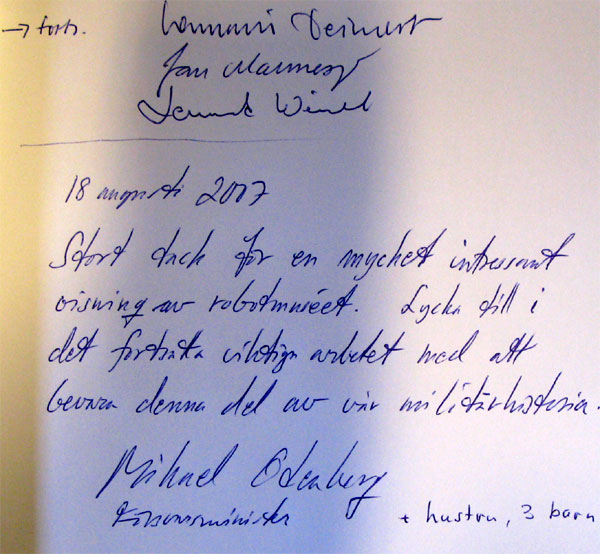 → forts.
Jan
18 augusti 2007
Stort tack för en mycket intressant
visning av robotmuséet. Lycka till i
det fortsatta viktiga arbetet med att
bevara denna del av vår militärhistoria.
Mikael Odenberg
Försvarsminister
+ hustru, 3 barn